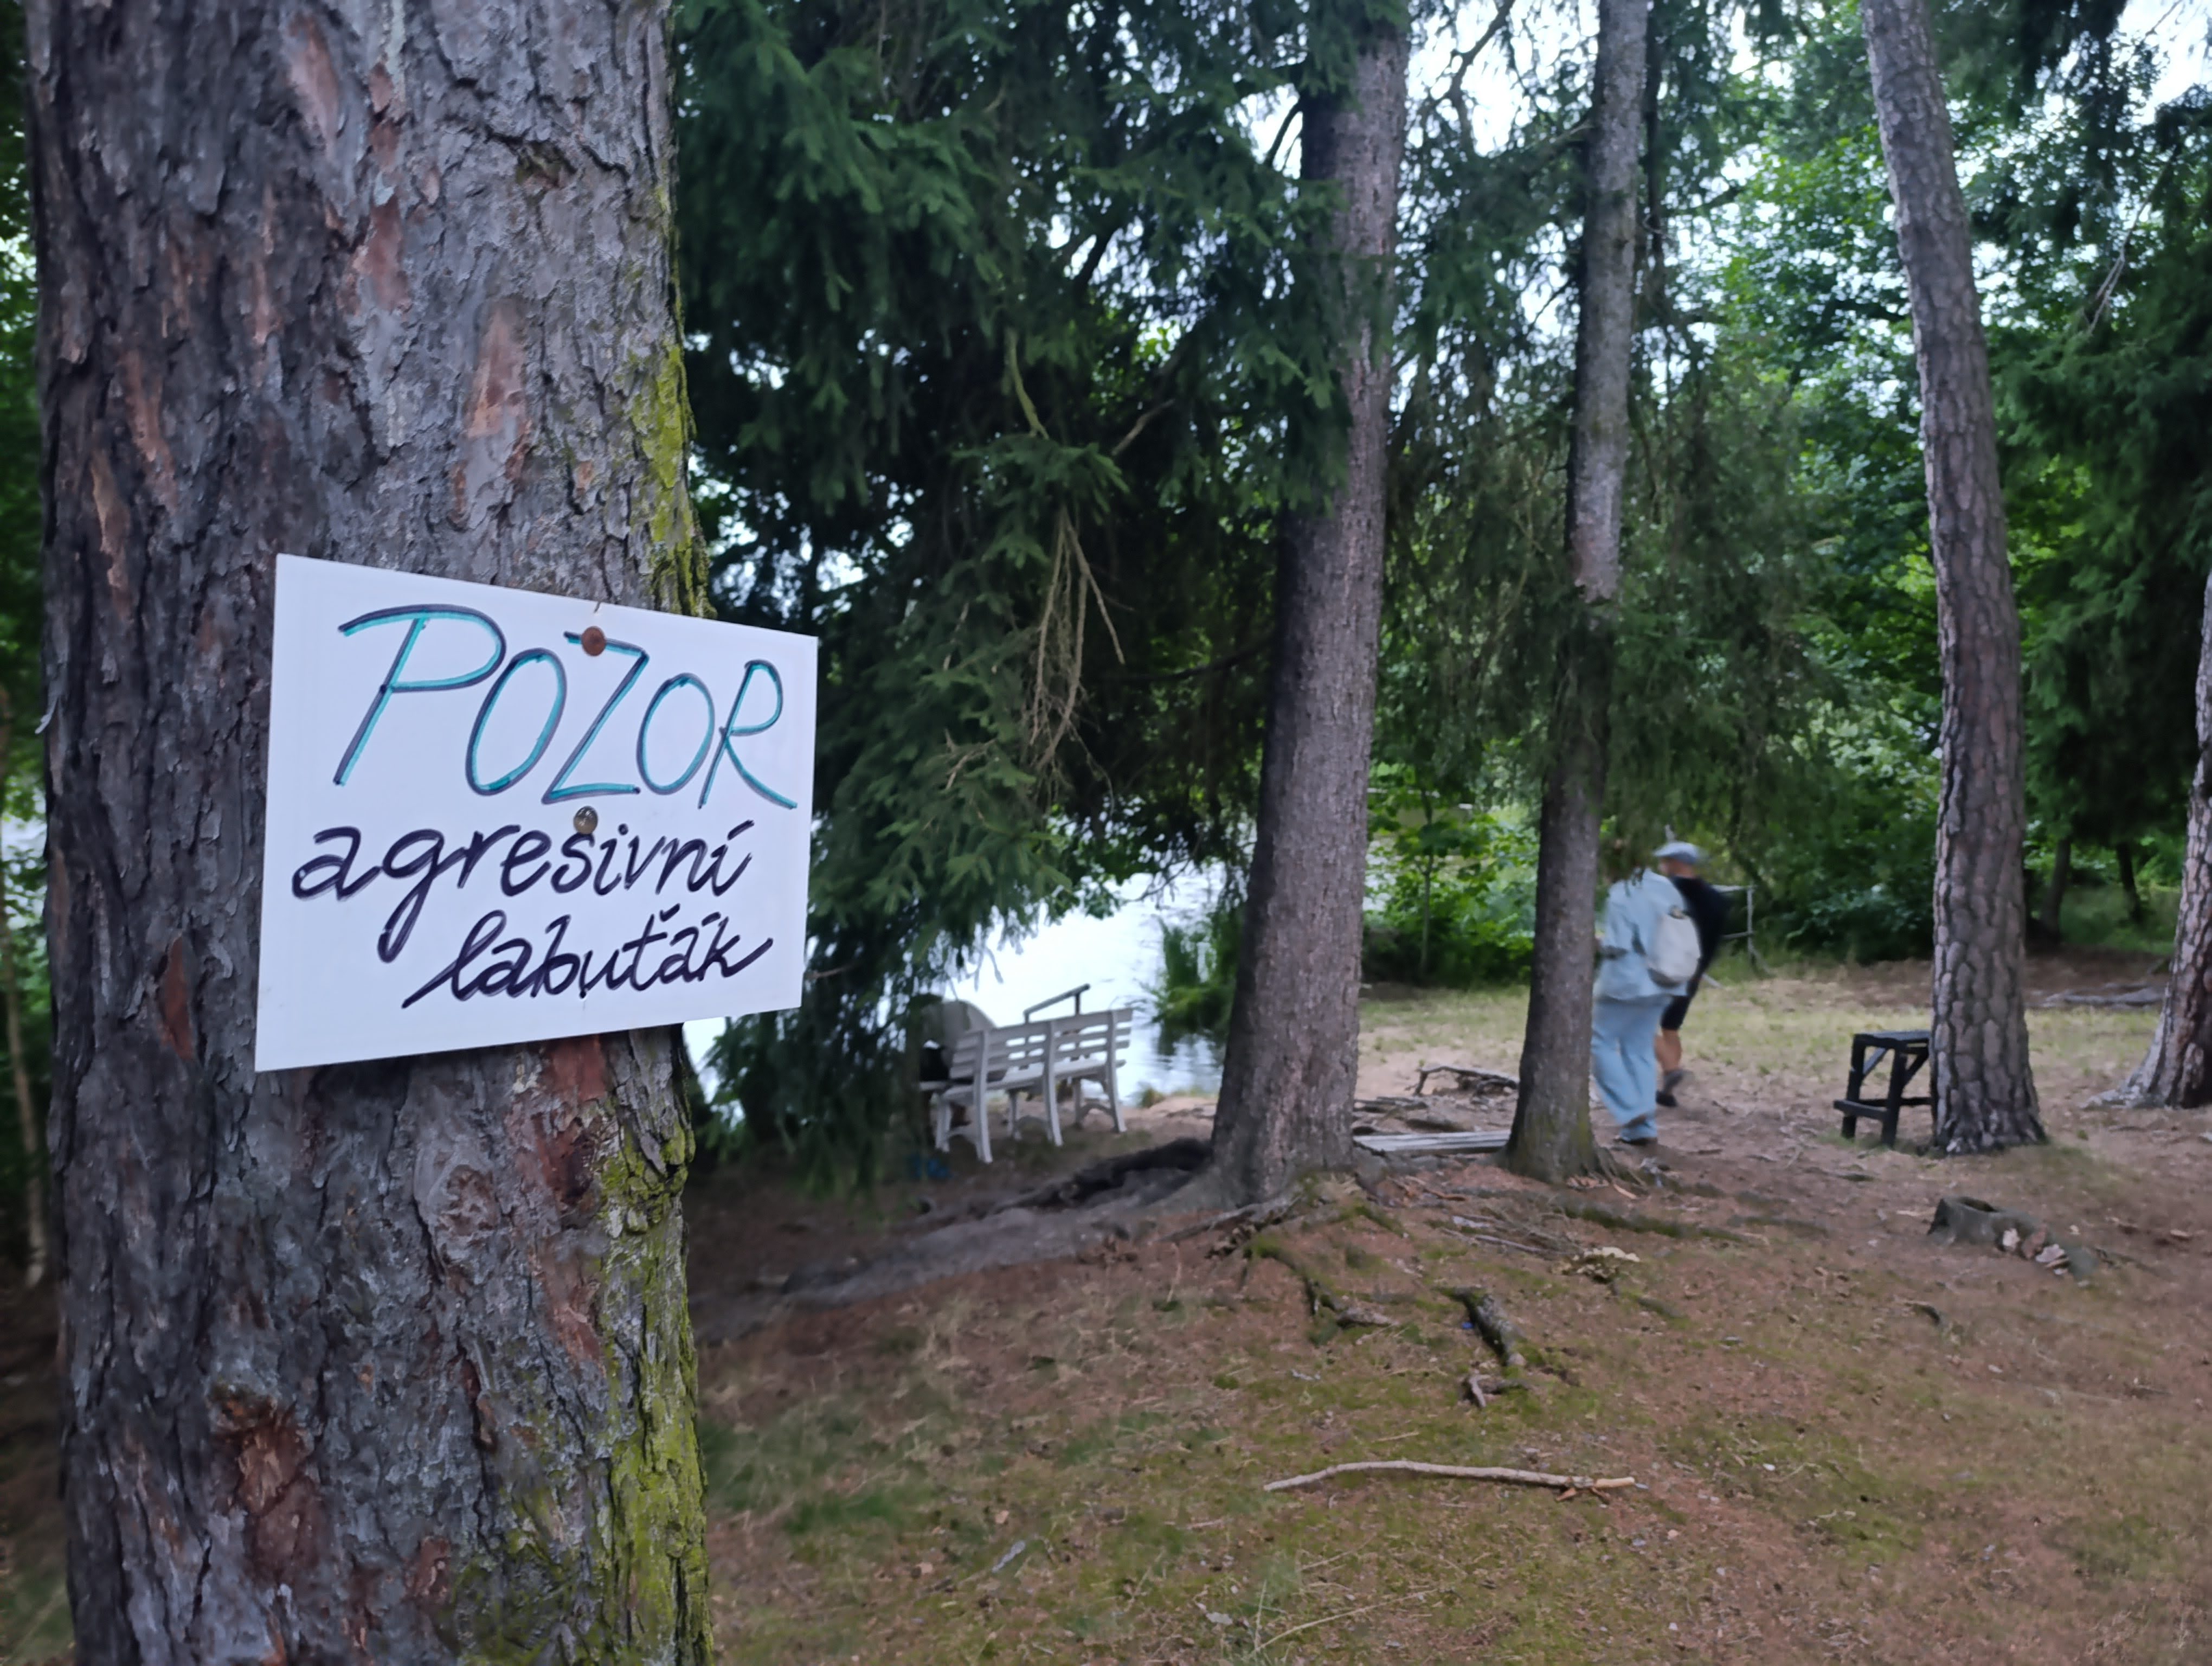 POZOR
agresivní
labuťák